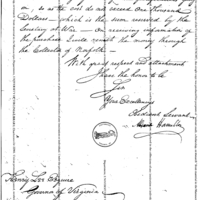 , so as the cost do not exceed One thousand
Dollars — which is the sum reserved by the
Secretary at War — On receiving information of
the purchase I will remit the money through
the Collector of Norfolk —
With great respect and attachment
I have the honor to be
Sir
Your Excellency's
Obedient Servant
Hamilton
Henry Lee Esquire
Governor of Virginia